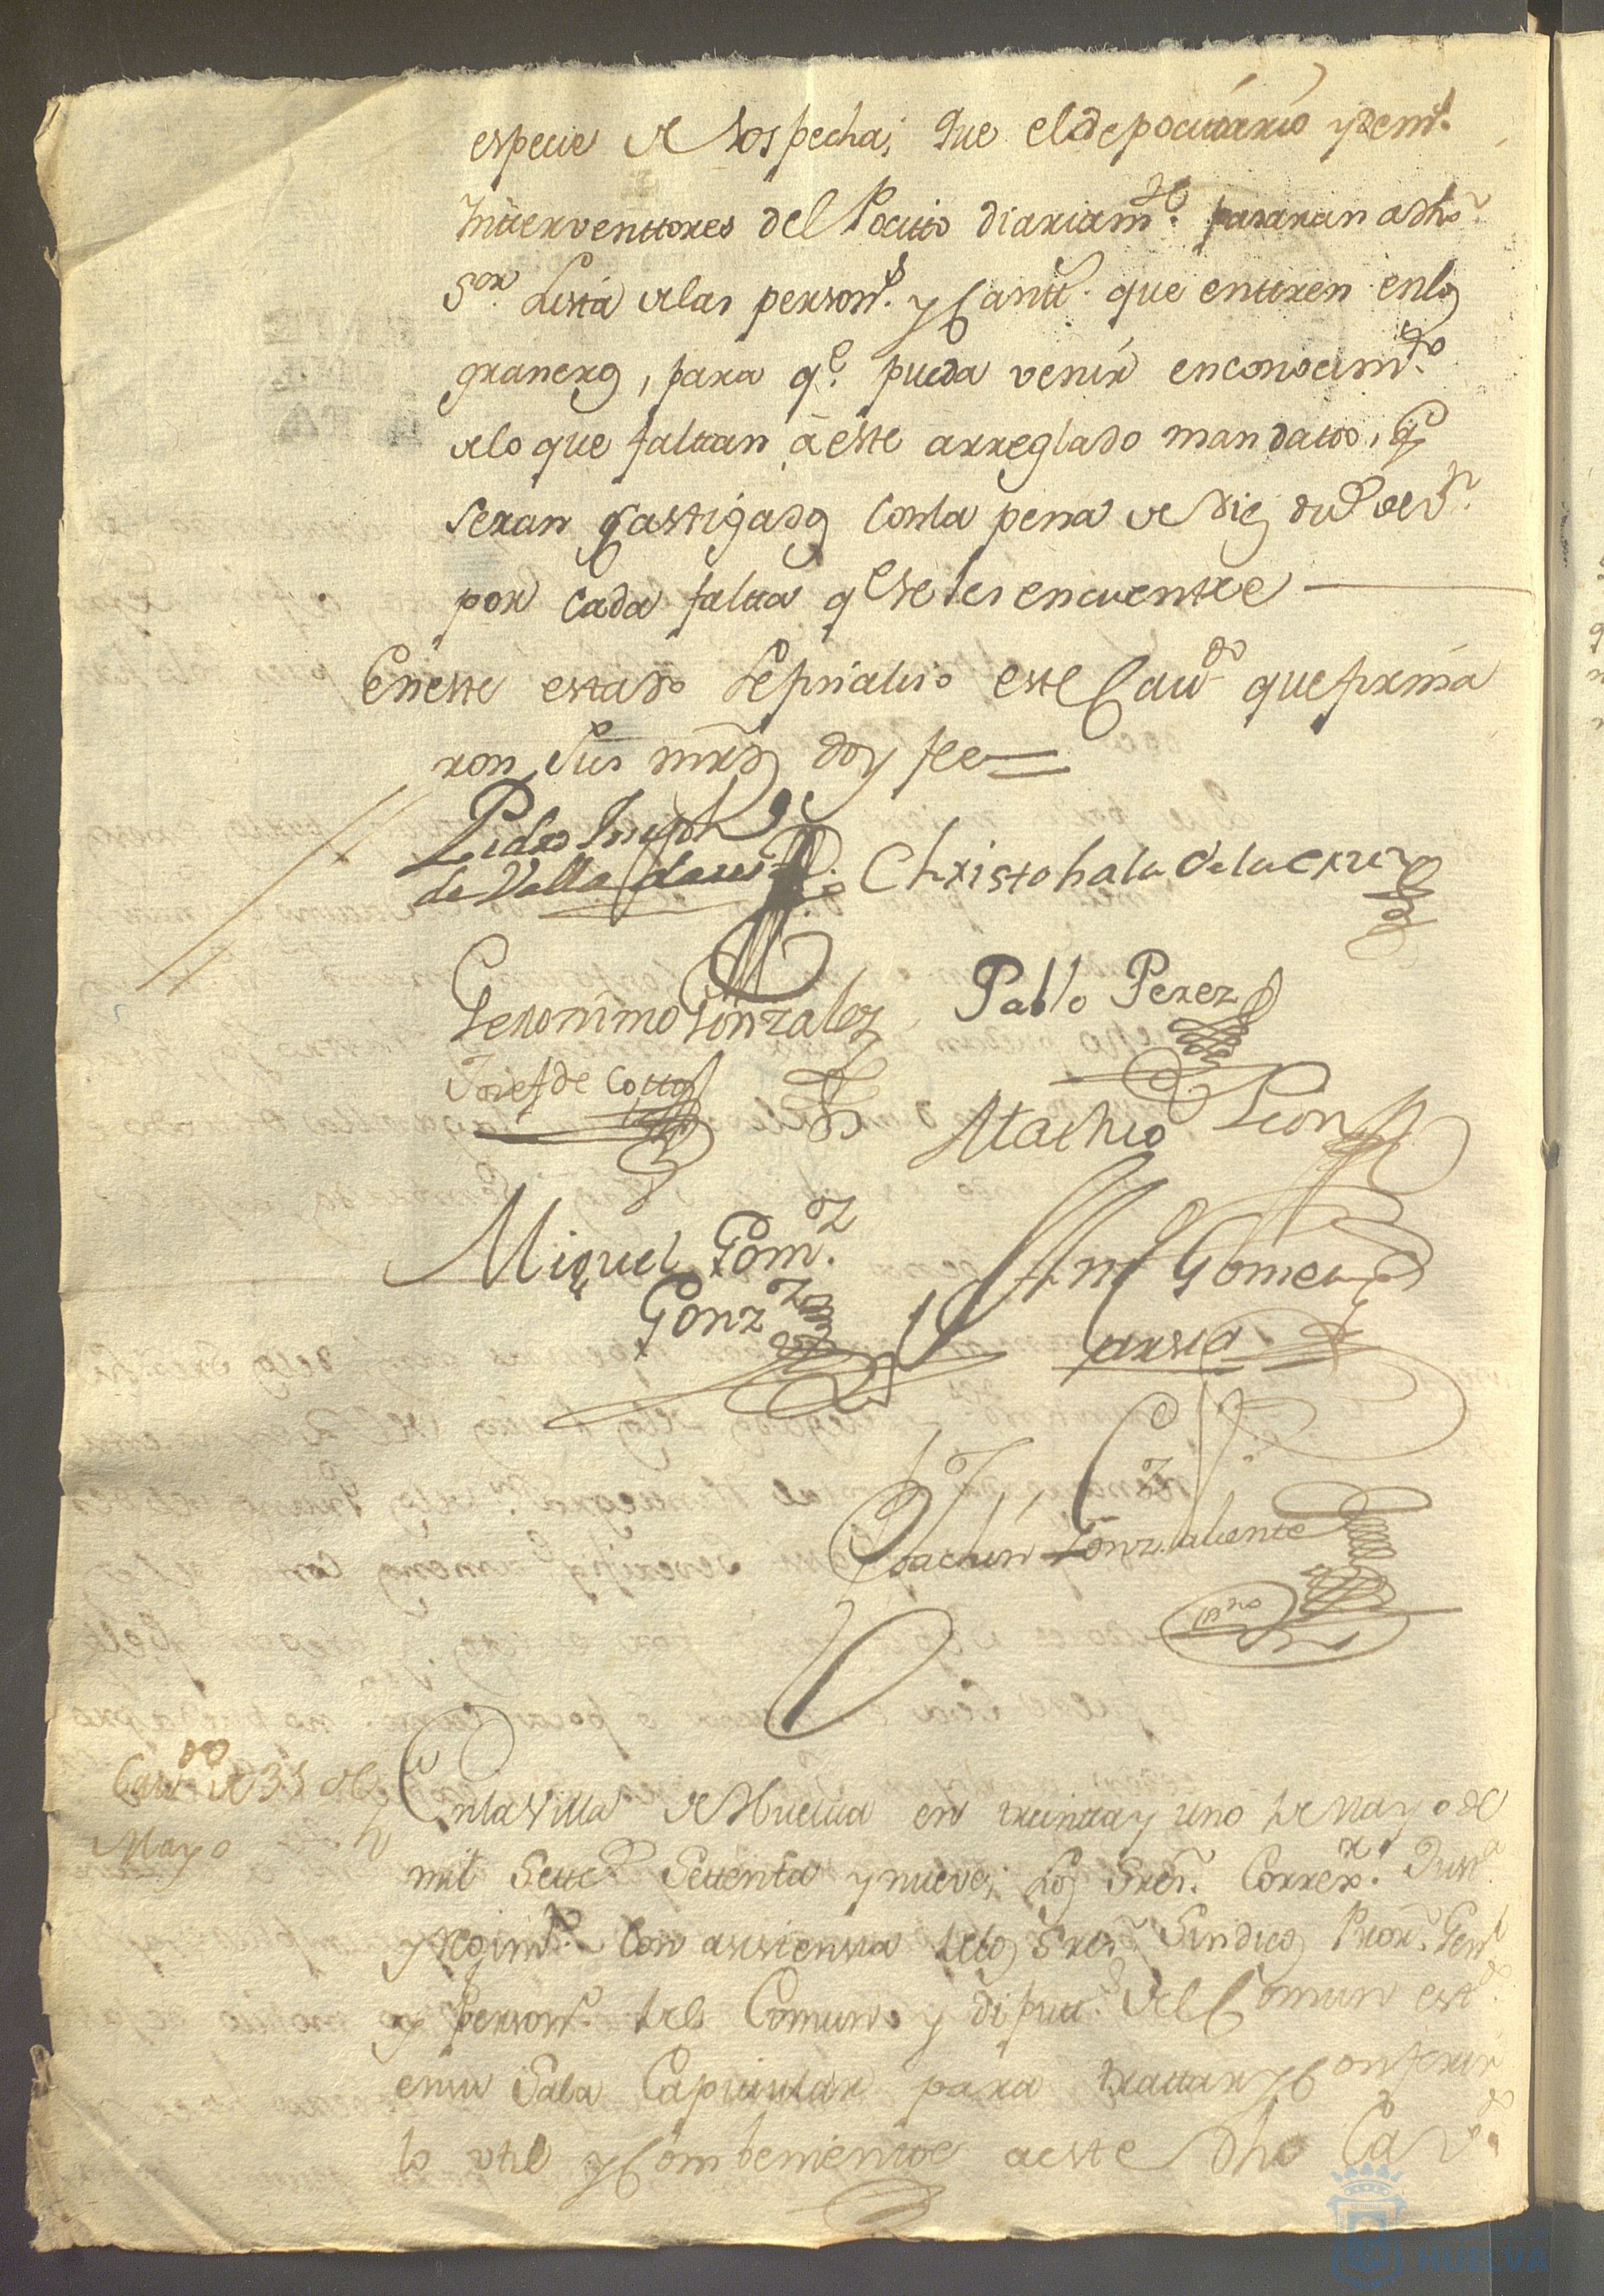 especie de sospecha; que el depocitario y dem.s
Ynterventtores del Pocitto diariam.te pasaran a dho
S.or Lista de las person.s y Cantt. que enttren en los
graneros, para q.e pueda venir en conosim.to
de lo que falttan à este arreglado mandatto, q.e
seran Castigados Con la pena de diez du.s de v.n
por cada faltta q.e se les encuentre
En este estado se finalisó este Cav.do que firma
ron sus mrds doy fee=
Pedro Joseph
de Valladares Christobal de la Cruz
Geronimo Gonzalez Pablo Perez
Josef de Cotto
Leon
Miguel Gom.z
Gonz.z
Ant Gomez
Garsia
Joachin Gonz.z Valiente
ss.no
Cav.do de 31 de
Mayo
En la Villa de Huelva en treinta y uno de Mayo de
mil Settec.s Settenta y nueve; Los Sres. Correx.r Just.a
y Regim.to Con asistensia de los Sres. Sindicos Pror. Gen.l
y Person.o del Comun y diputt.s del Comun est.do
en su Sala Capitular para trattar y Conferir
lo util y Combeniente a este dho Cav.do
HUELVA